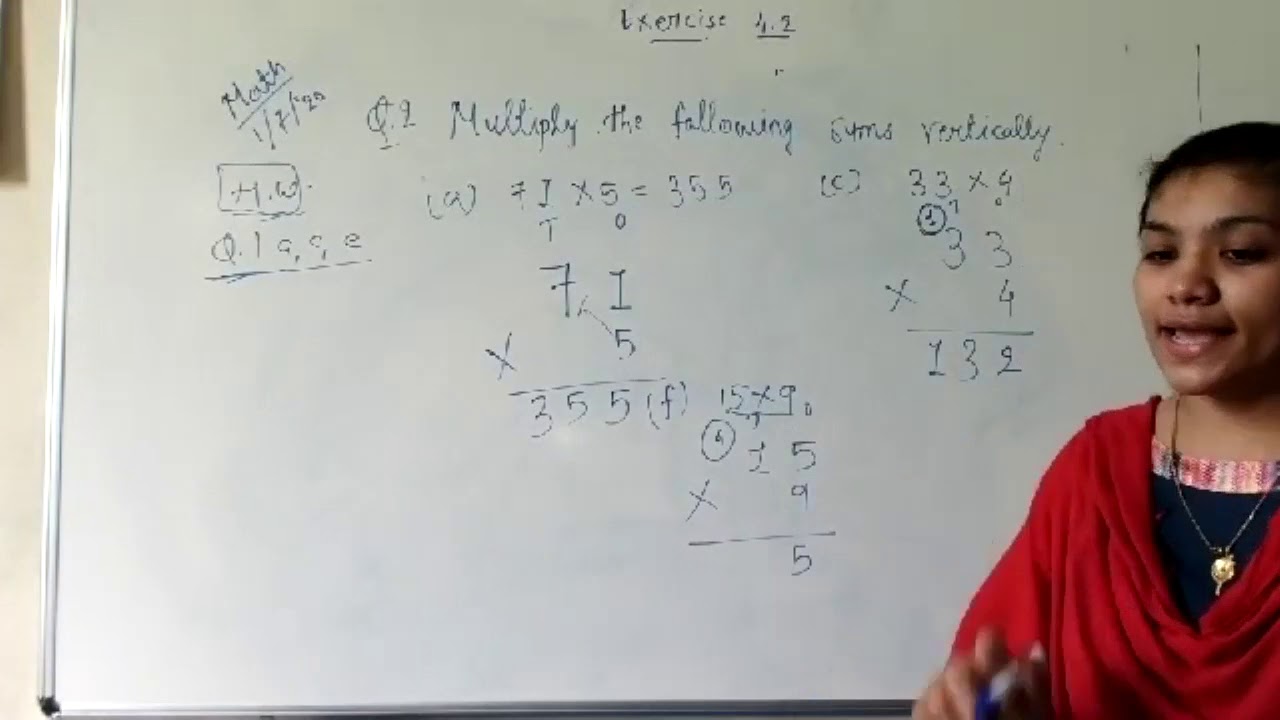 Exercise 4.2
Math
1/7/'20
Q.2 Multiply the following sums vertically.
H.W.
Q.1 a, c, e
(a) 71 × 5 = 355
T O
71
× 5
355
(c) 33 × 4
T O
① 33
× 4
132
(f) 15 × 9
T O
15
× 9
5